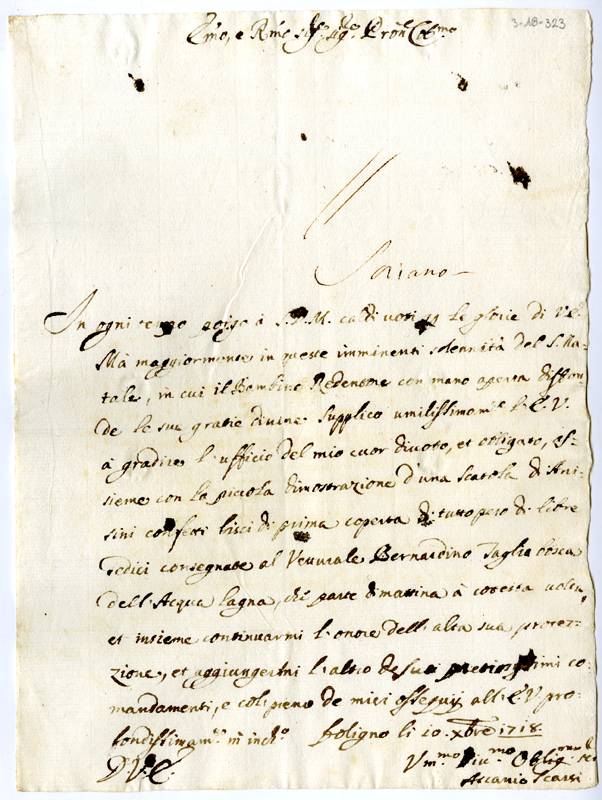 3-18-323
Emo, e Rmo Sig.re Sig.re Pron Colmo
Soriano
In ogni tempo porgo à S.D.M. caldi voti per le glorie di V.E.
Mà maggiormente in queste imminenti solennità del S. Na-
tale, in cui il Bambino Redentore con mano aperta diffon-
de le sue gratie divine. Supplico umilissimamte l'E.V.
à gradire l'ufficio del mio cuor divoto, et obligato, as-
sieme con la piccola dimostrazione d'una scatola di Ani-
sini confetti lisci di prima coperta di tutto peso di libre
sedici consegnate al Vetturale Bernardino Taglia bosca
dell'Acqua lagna, che parte dimattina à cotesta volta
et insieme continuarmi l'onore dell'alta sua protet-
zione, et aggiungermi l'altro de suoi pretiosissimi co-
mandamenti, e colj pieno de miei ossequij all'E.V. pro-
fondissimamte m'incho. foligno li 10. Xbre 1718.
D.V.E.
Vmmo Divmo Obligmo Ser
Ascanio Scarsi